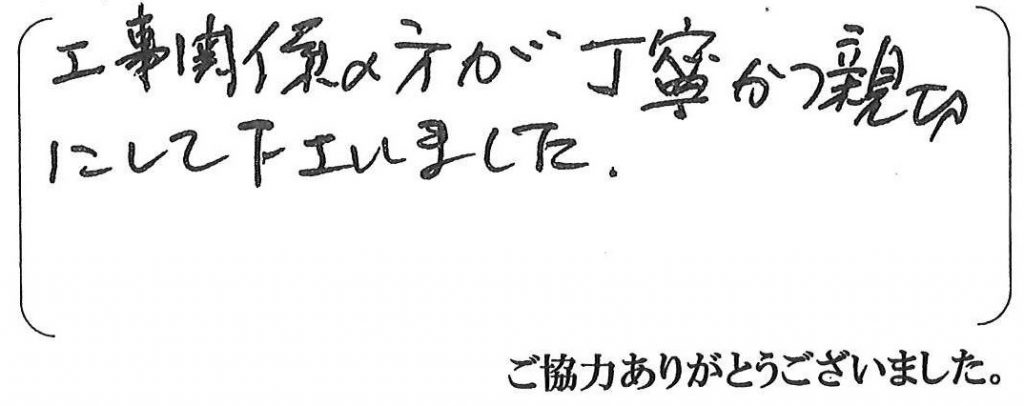 工事関係の方が丁寧かつ親切
にして下さいました.
ご協力ありがとうございました。